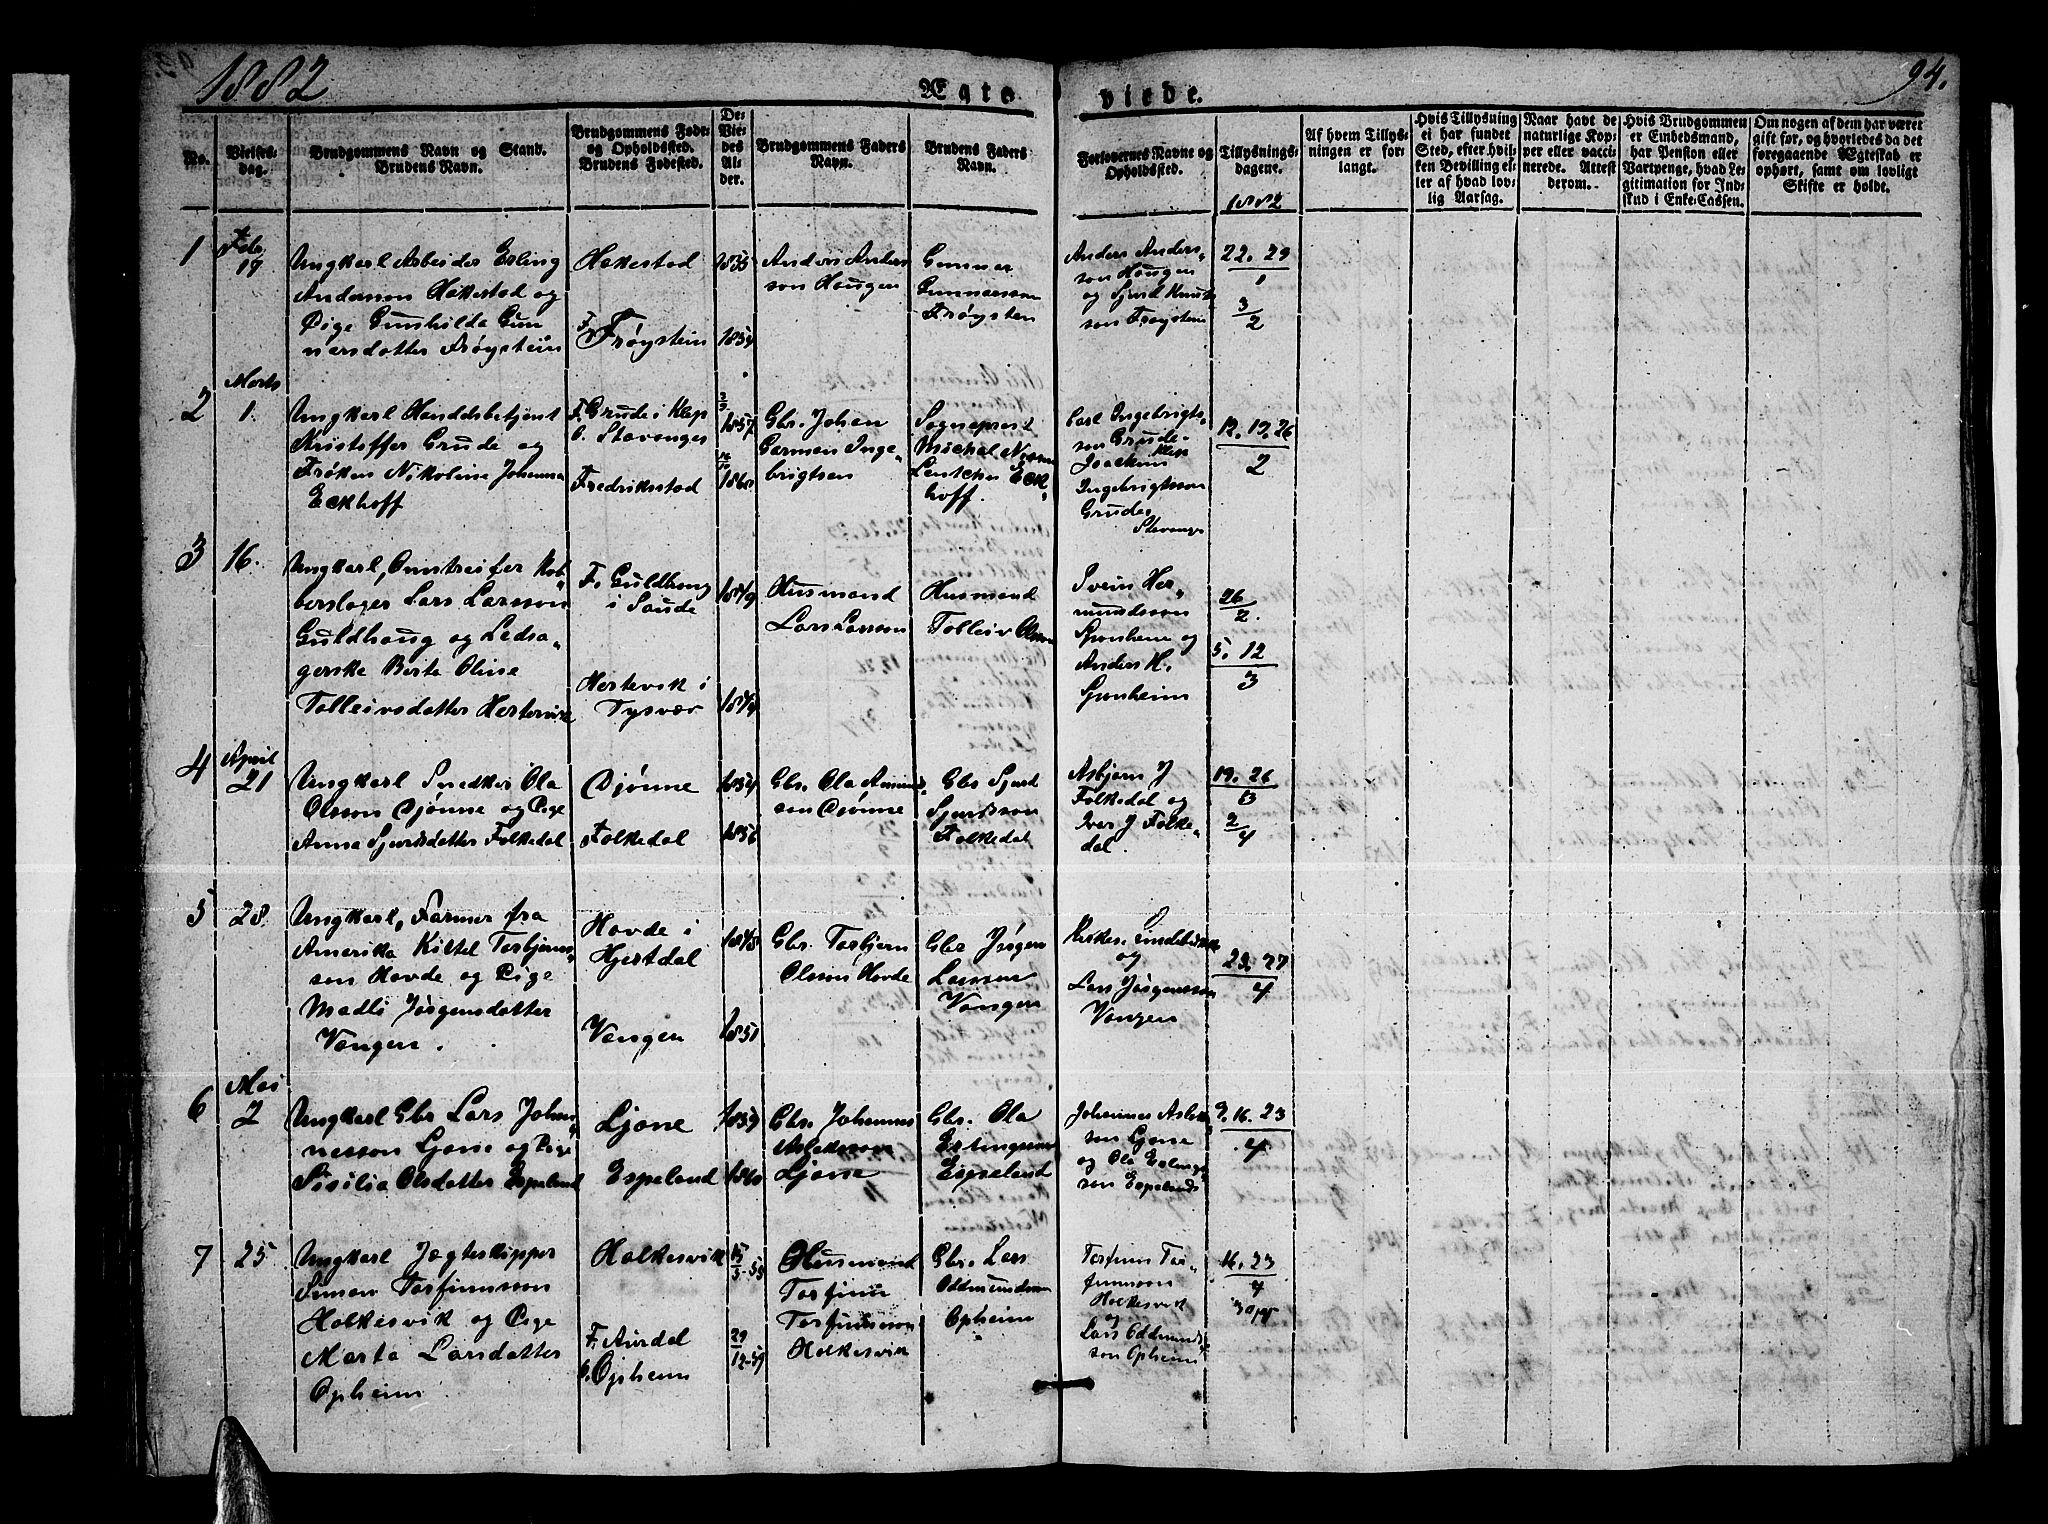 1882
Ægte
viede.
94.
No.
Vielses-
dag.
Brudgommens Navn og Stand.
Brudens Navn.
Brudgommens Føde-
og Opholdssted.
Brudens Fødested.
De
Vie-
des
Al-
der.
Brudgommens Faders
Navn.
Brudens Faders
Navn.
Forlovernes Navne og
Opholdssted.
Tillysnings-
dagene.
1882
Af hvem Tillys-
ningen er for-
langt.
Hvis Tillysning
ei har fundet
Sted, efter hvil-
ken Bevilling el-
ler af hvad lov-
lig Aarsag.
Naar havt de
naturlige Kop-
per eller vacci-
nerede. Attest
derom.
Hvis Brudgommen
er Embedsmand,
har Pension eller
Vartpenge, hvad Le-
gitimation for Ind-
skud i Enke-Cassen.
Om nogen af dem har været
gift før, og hvorledes da det
foregaaende Ægteskab er
ophørt, samt om lovligt
Skifte er holdt.
1
Febr.
17
Ungkarl Arbeider Erling
Andersson Hakestad og
Pige Gunhilda Gun
nersdatter Frøystein
Hakestad
F. Frøystein
1855
1854
Anders Anders
son Haugen
Gunnar
Gunnarsson
Frøystein
Anders Anders
son Haugen
og Sjurd Knuts
son Frøystein
22. 29
1
3
2
2
Marts
1.
Ungkarl Handelsbetjent
Kristoffer Grude og
Frøken Nikoline Johanna
Eckhoff
F. Grude i Klep
b. Stavanger
Fredriksstad
1857
1860
Gbr. Johan
Garmen Inge„
brigtsen
Sogneprest
Michal
Lentche Eck„
hoff.
Carl Ingebrigts„
son Grude
Klep
Joackim
Ingebrigtsson
Grude
Stavanger
12. 19. 26
2
3
16.
Ungkarl, Omreisfer Kob„
berslager Lars Larsson
Guldhaug og Ledsa„
gerske Berte Oline
Tolleivsdatter Hertervik
F. Guldhaug
i Saude
Hertevik i
Tysvær
1849
Husmand
Lars Larsson
Husmand
Tolleiv Olsson
Svein Her„
mundsson
Sponheim og
Anders H.
Sponheim
26
2.
5. 12
3
4
April
21
Ungkarl Snedker Ola
Olsson Djønne og Pige
Anna Sjursdatter Folkedal
Djønne
Folkedal
1854
1856
Gbr. Ola Amund„
son Djønne
Gbr Sjurd
Sjurdsson
Folkedal
Asbjørn J
Folkedal og
Iver J Folke„
dal.
19. 26
3
2
4
5
28.
Ungkarl, Farmer fra
Amerika Kittel Torbjørns„
son Hovde og Pige
Madli Jørgensdatter
Vangen.
Hovde i
Hjertdal
Vangen
1848
1851
Gbr. Torbjørn
Olsson Hovde
Gbr Jørgen
Larssen
Vangen
Kirkes. Lindebrekke
og
Lars Jørgensson
Vangen
23. 27
4
6
Mai
2
Ungkarl Gbr Lars Johan„
nesson Ljone og Pige
Sisilia Olsdatter Espeland
Ljone
Espeland
1859
1860
Gbr. Johannes
Aslaksson
Ljone
Gbr. Ola
Erlingsson
Espeland
Johannes Aslak
son Ljone
og Ola Erlings„
son Espeland
9. 16. 23
4
7
25
Ungkarl Jægteskipper
Simon Torfinnsson
Halkesvik og Pige
Marta Larsdatter
Opheim
Halkesvik
F. Aurdal
b. Opheim
15
3-55
29
12-59
Husmand
Torfinn
Torfinnsson
Halkesvik
Gbr. Lars
Oddmundsson
Opheim
Torfinn Tor„
finnsson
Halkesvik
og
Lars Oddmunds
son Opheim
16. 23
4
30